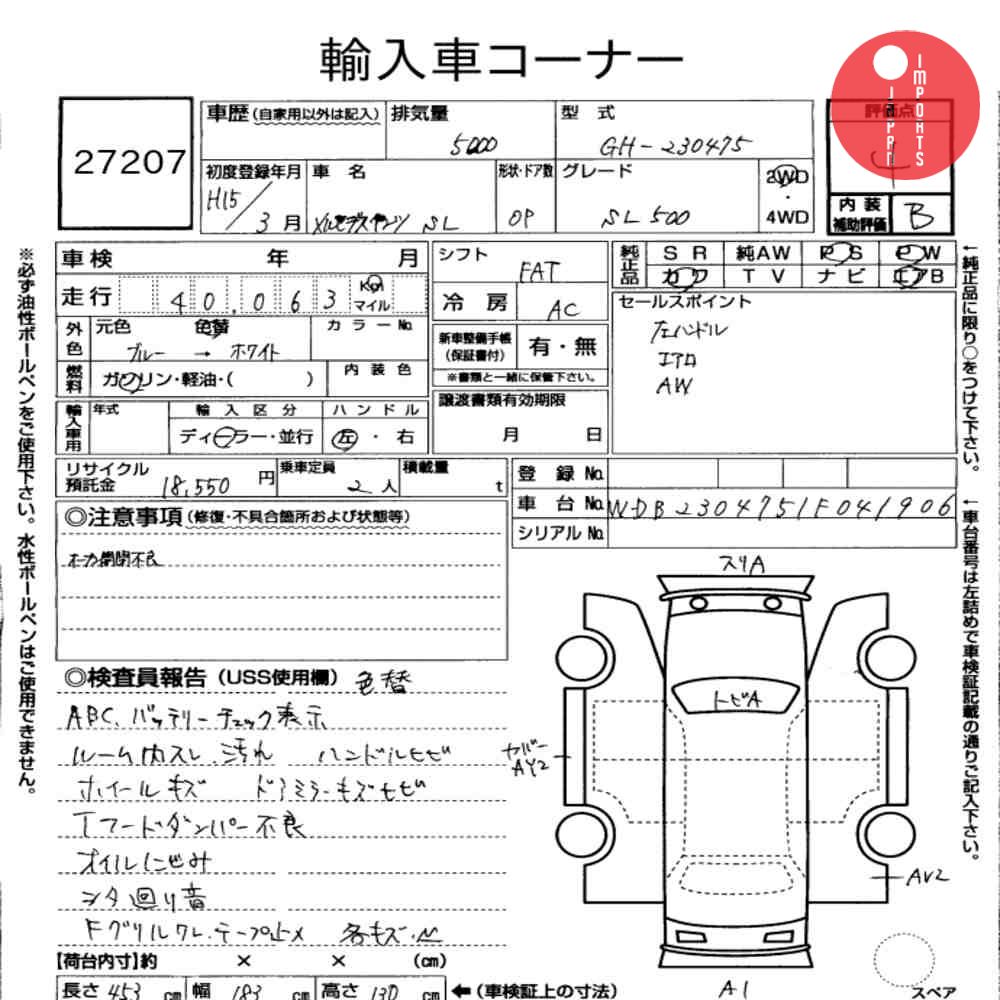 輸入車コーナー
JAPAN IMPORTS
27207
車歴(自家用以外は記入)
排気量
5000
型 式
GH-230475
評価点
4
初度登録年月
H15/3月
車 名
メルセデスベンツ SL
形状・ドア数
OP
グレード
SL 500
2WD
・
4WD
内装
補助評価
B
車検 年 月
シフト
FAT
純正品
SR 純AW PS PW
カワ TV ナビ エアB
走行
40,063
Km
マイル
冷 房
AC
セールスポイント
左ハンドル
エアロ
AW
外色
元色 色替
ブルー → ホワイト
カラーNo.
新車整備手帳
(保証書付)
有・無
※書類と一緒に保管下さい。
燃料
ガソリン・軽油・( )
内 装 色
譲渡書類有効期限
月 日
輸入車用
年式
輸 入 区 分
ディーラー・並行
ハ ン ド ル
左・右
リサイクル
預託金
18,550 円
乗車定員
2 人
積載量
t
登 録 No.
車 台 No.
WDB2304751F041906
シリアル No.
◎注意事項(修復・不具合箇所および状態等)
オーカ開閉不良
◎検査員報告(USS使用欄) 色替
ABC、バッテリーチェック表示
ルーム内スレ、汚れ ハンドルヒビ
ホイールキズ ドアミラーキズヒビ
Tフードダンパー不良
オイルにじみ
シタ回り音
Fグリルワレ、テープ止メ 各キズ・凹
スリA
トビA
カバー
AY2
AV2
A1
スペア
【荷台内寸】約 × × (cm)
長さ 453 cm 幅 183 cm 高さ 130 cm
←(車検証上の寸法)
※必ず油性ボールペンをご使用下さい。水性ボールペンはご使用できません。
←純正品に限り○をつけて下さい。
←車台番号は左詰めで車検証記載の通りご記入下さい。